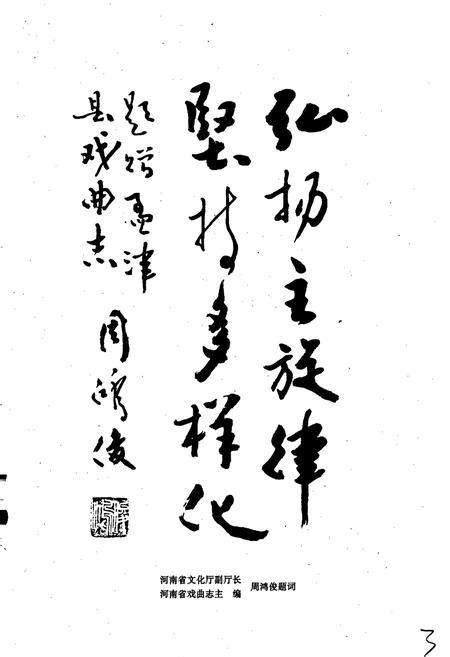 弘扬主旋律
坚持多样化
题赠孟津
县戏曲志
周鸿俊
河南省文化厅副厅长
河南省戏曲志主　编
周鸿俊题词
3